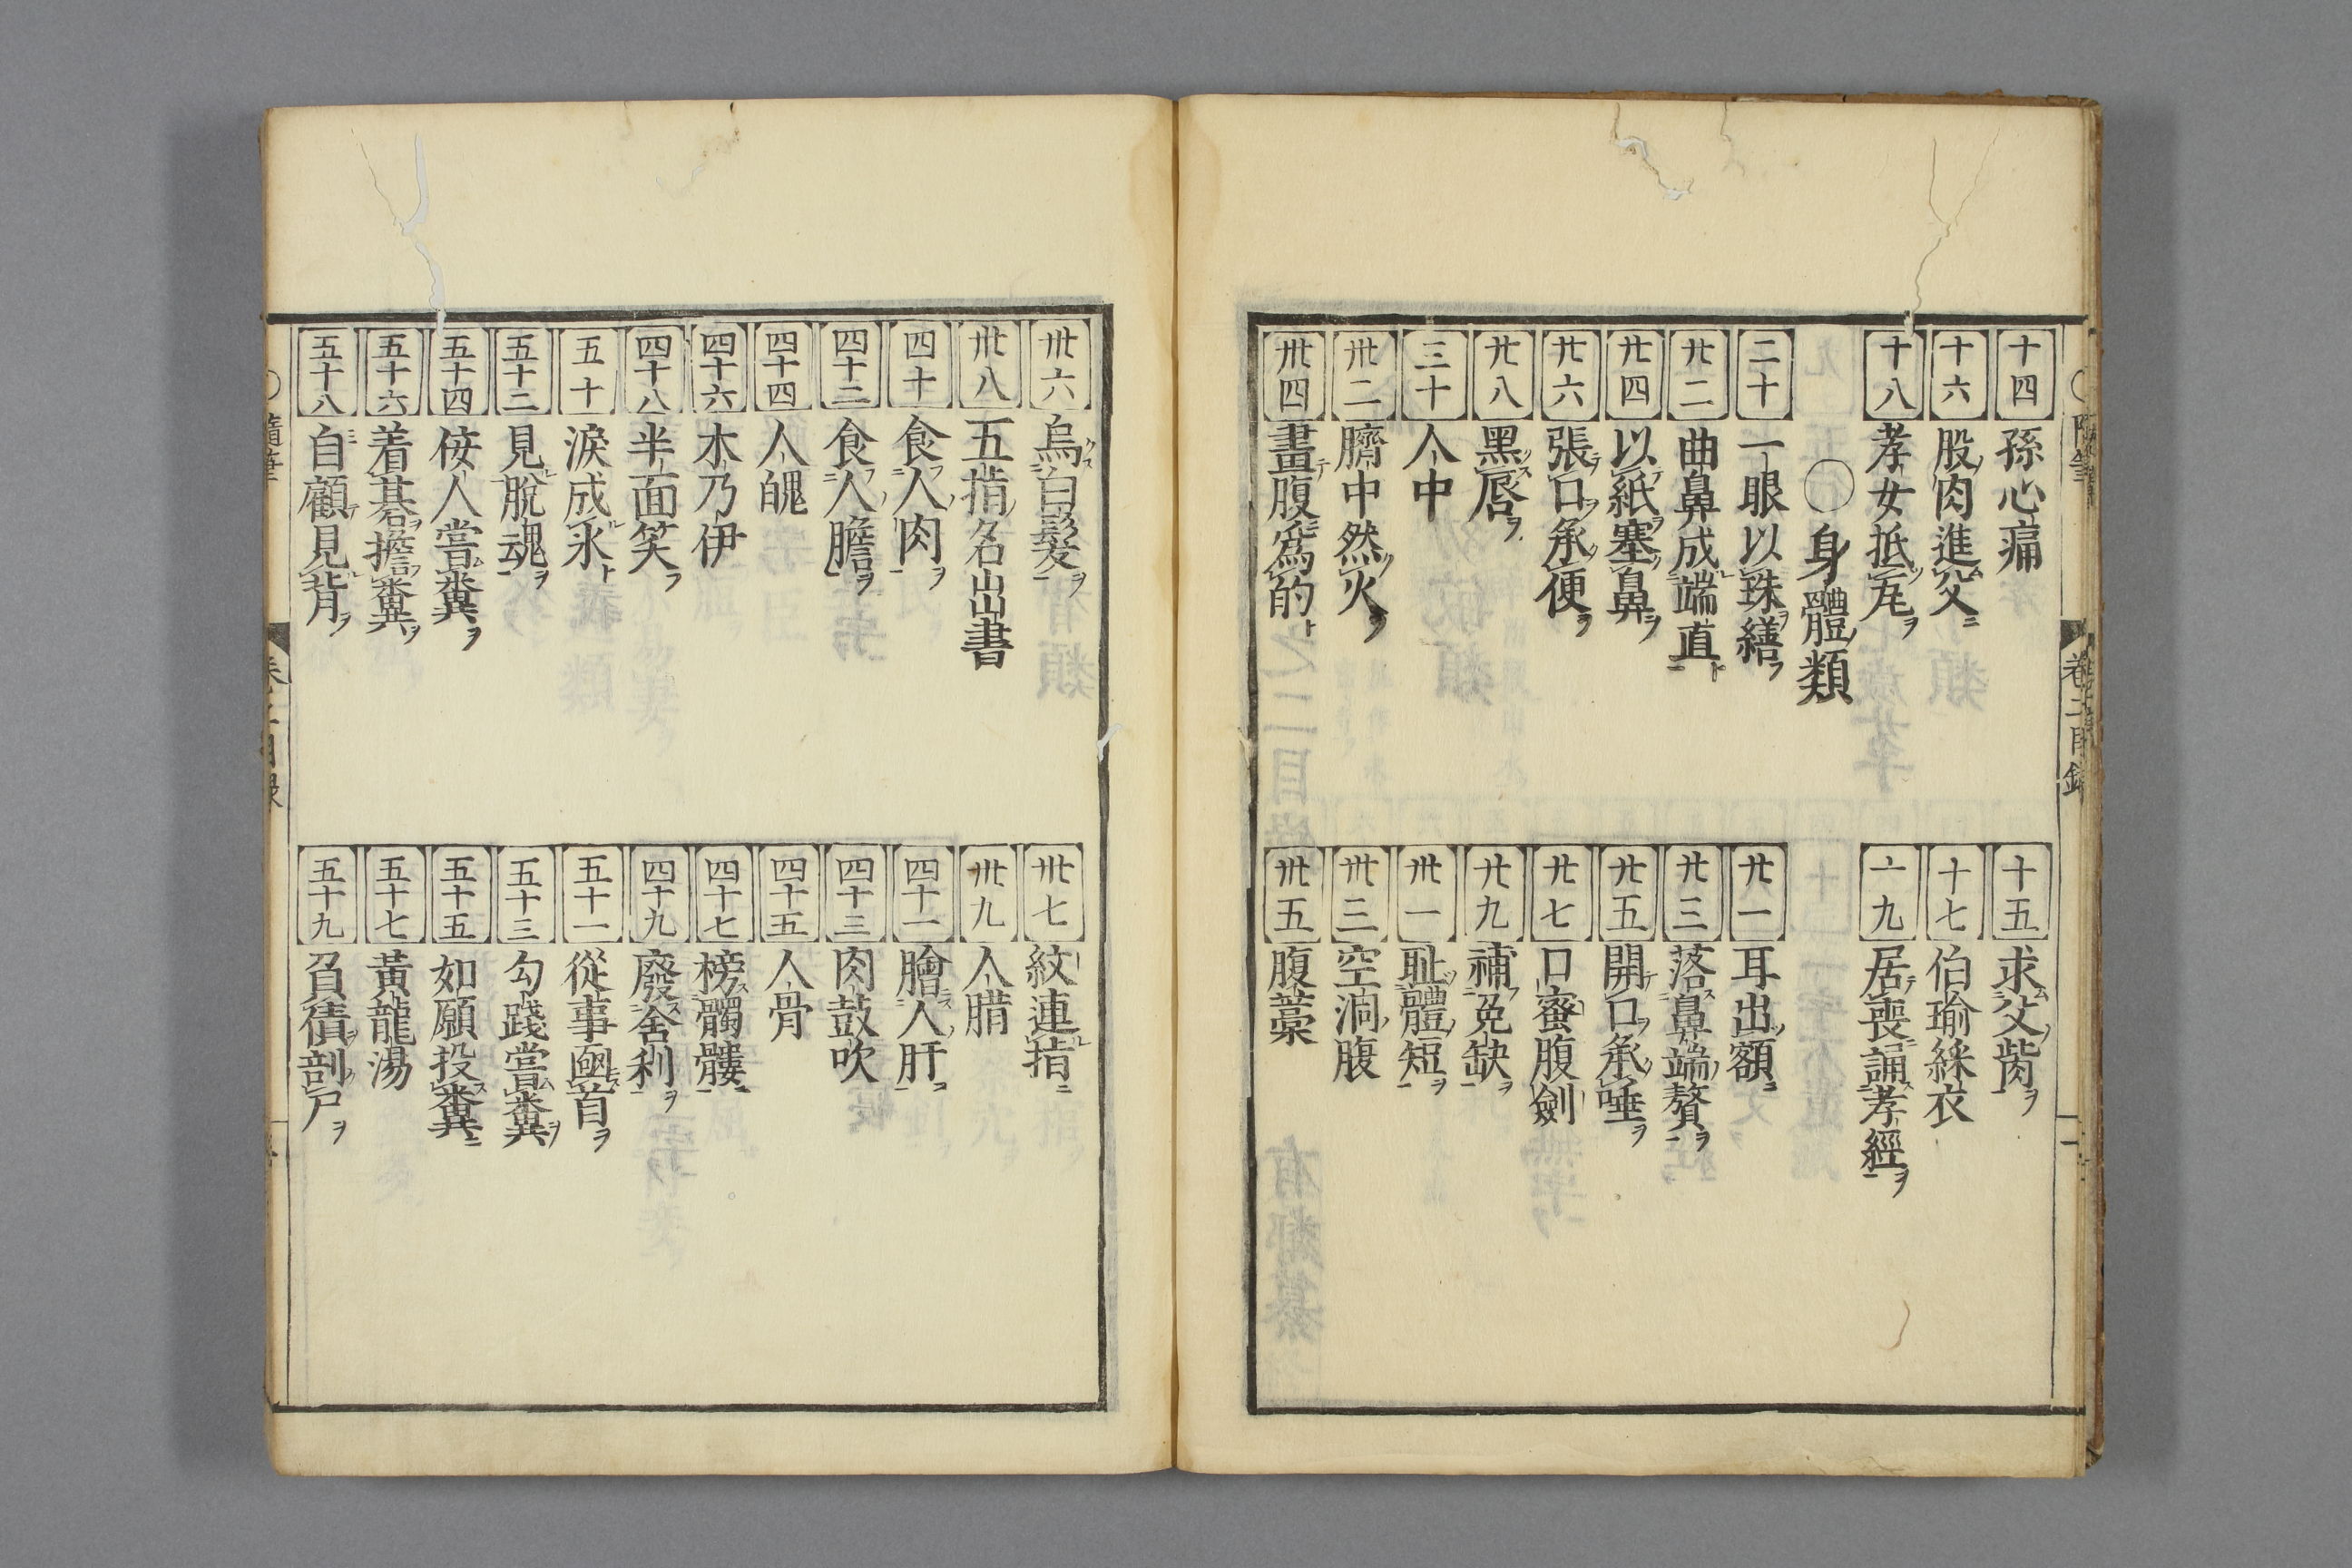 十四 孫心痛
十五 求父胔ヲ
十六 股肉進父ニ
十七 伯瑜綵衣
十八 孝女抵瓦ヲ
十九 居喪誦孝經ヲ
〇身體類
二十 一眼以珠繕フ
廿一 耳出額ニ
廿二 曲鼻成端直ト
廿三 落鼻端贅ヲ
廿四 以紙塞鼻ヲ
廿五 開口承唾ヲ
廿六 張口承便ヲ
廿七 口蜜腹劍
廿八 黑唇ヲ
廿九 補免缺ヲ
三十 人中
卅一 耻體短ヲ
卅二 臍中然火ヲ
卅三 空洞腹
卅四 畫腹為的ト
卅五 腹藁
卅六 烏白髮ヲ
卅七 紋連指ニ
卅八 五指名出書
卅九 人腊
四十 食人肉ヲ
四十一 膾人肝ヲ
四十二 食人膽ヲ
四十三 肉鼓吹
四十四 人魄
四十五 人骨
四十六 木乃伊
四十七 榜髑髏ニ
四十八 半面笑フ
四十九 廢舍利ヲ
五十 淚成氷ト
五十一 從事函首ヲ
五十二 見脫魂ヲ
五十三 勾踐嘗糞ヲ
五十四 佞人嘗糞ヲ
五十五 如願投糞ニ
五十六 着碁擔糞ヲ
五十七 黃龍湯
五十八 自顧見背ヲ
五十九 負債剖尸ヲ